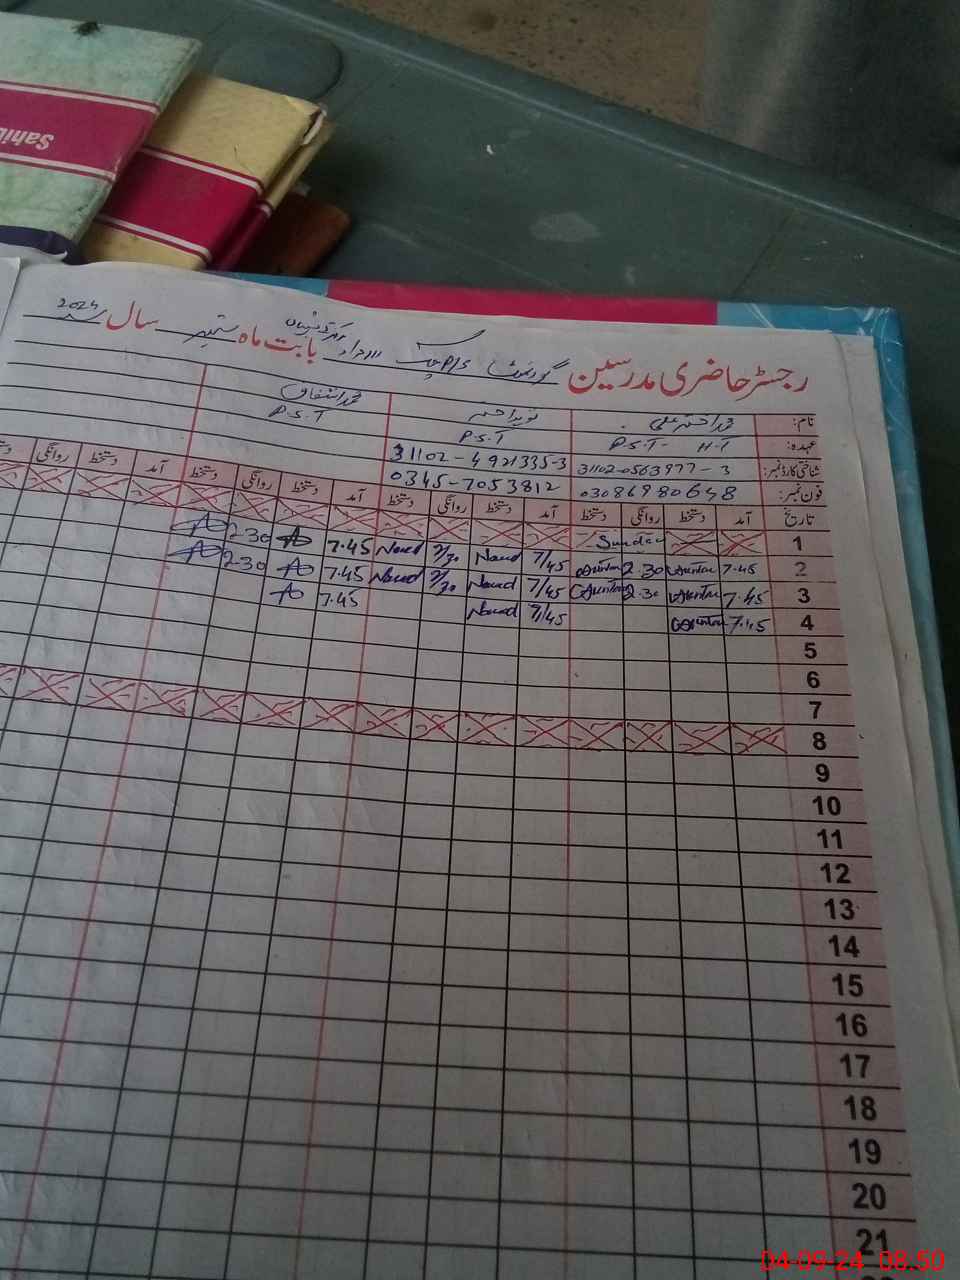 Sahi
رجسٹر حاضری مدرسین گورنمنٹ P/S چک بابت ماہ ستمبر سال 2024
نام: محمد اختر علی نوید احمد محمد اشفاق
عہدہ: P.S.T - H.T P.S.T P.S.T
شناختی کارڈ نمبر: 31102-0563977-3 31102-4921335-3
فون نمبر: 03086980648 0345-7053812
تاریخ آمد دستخط روانگی دستخط آمد دستخط روانگی دستخط آمد دستخط روانگی دستخط آمد دستخط روانگی
1 Sunday
2 7.45 2.30 7/45 Naved 2/30 Naved 7.45 2.30
3 7.45 2.30 7/45 Naved 2/30 Naved 7.45 2.30
4 7.45 7/45 Naved 7.45
5
6
7
8
9
10
11
12
13
14
15
16
17
18
19
20
21
04-09-24 08:50